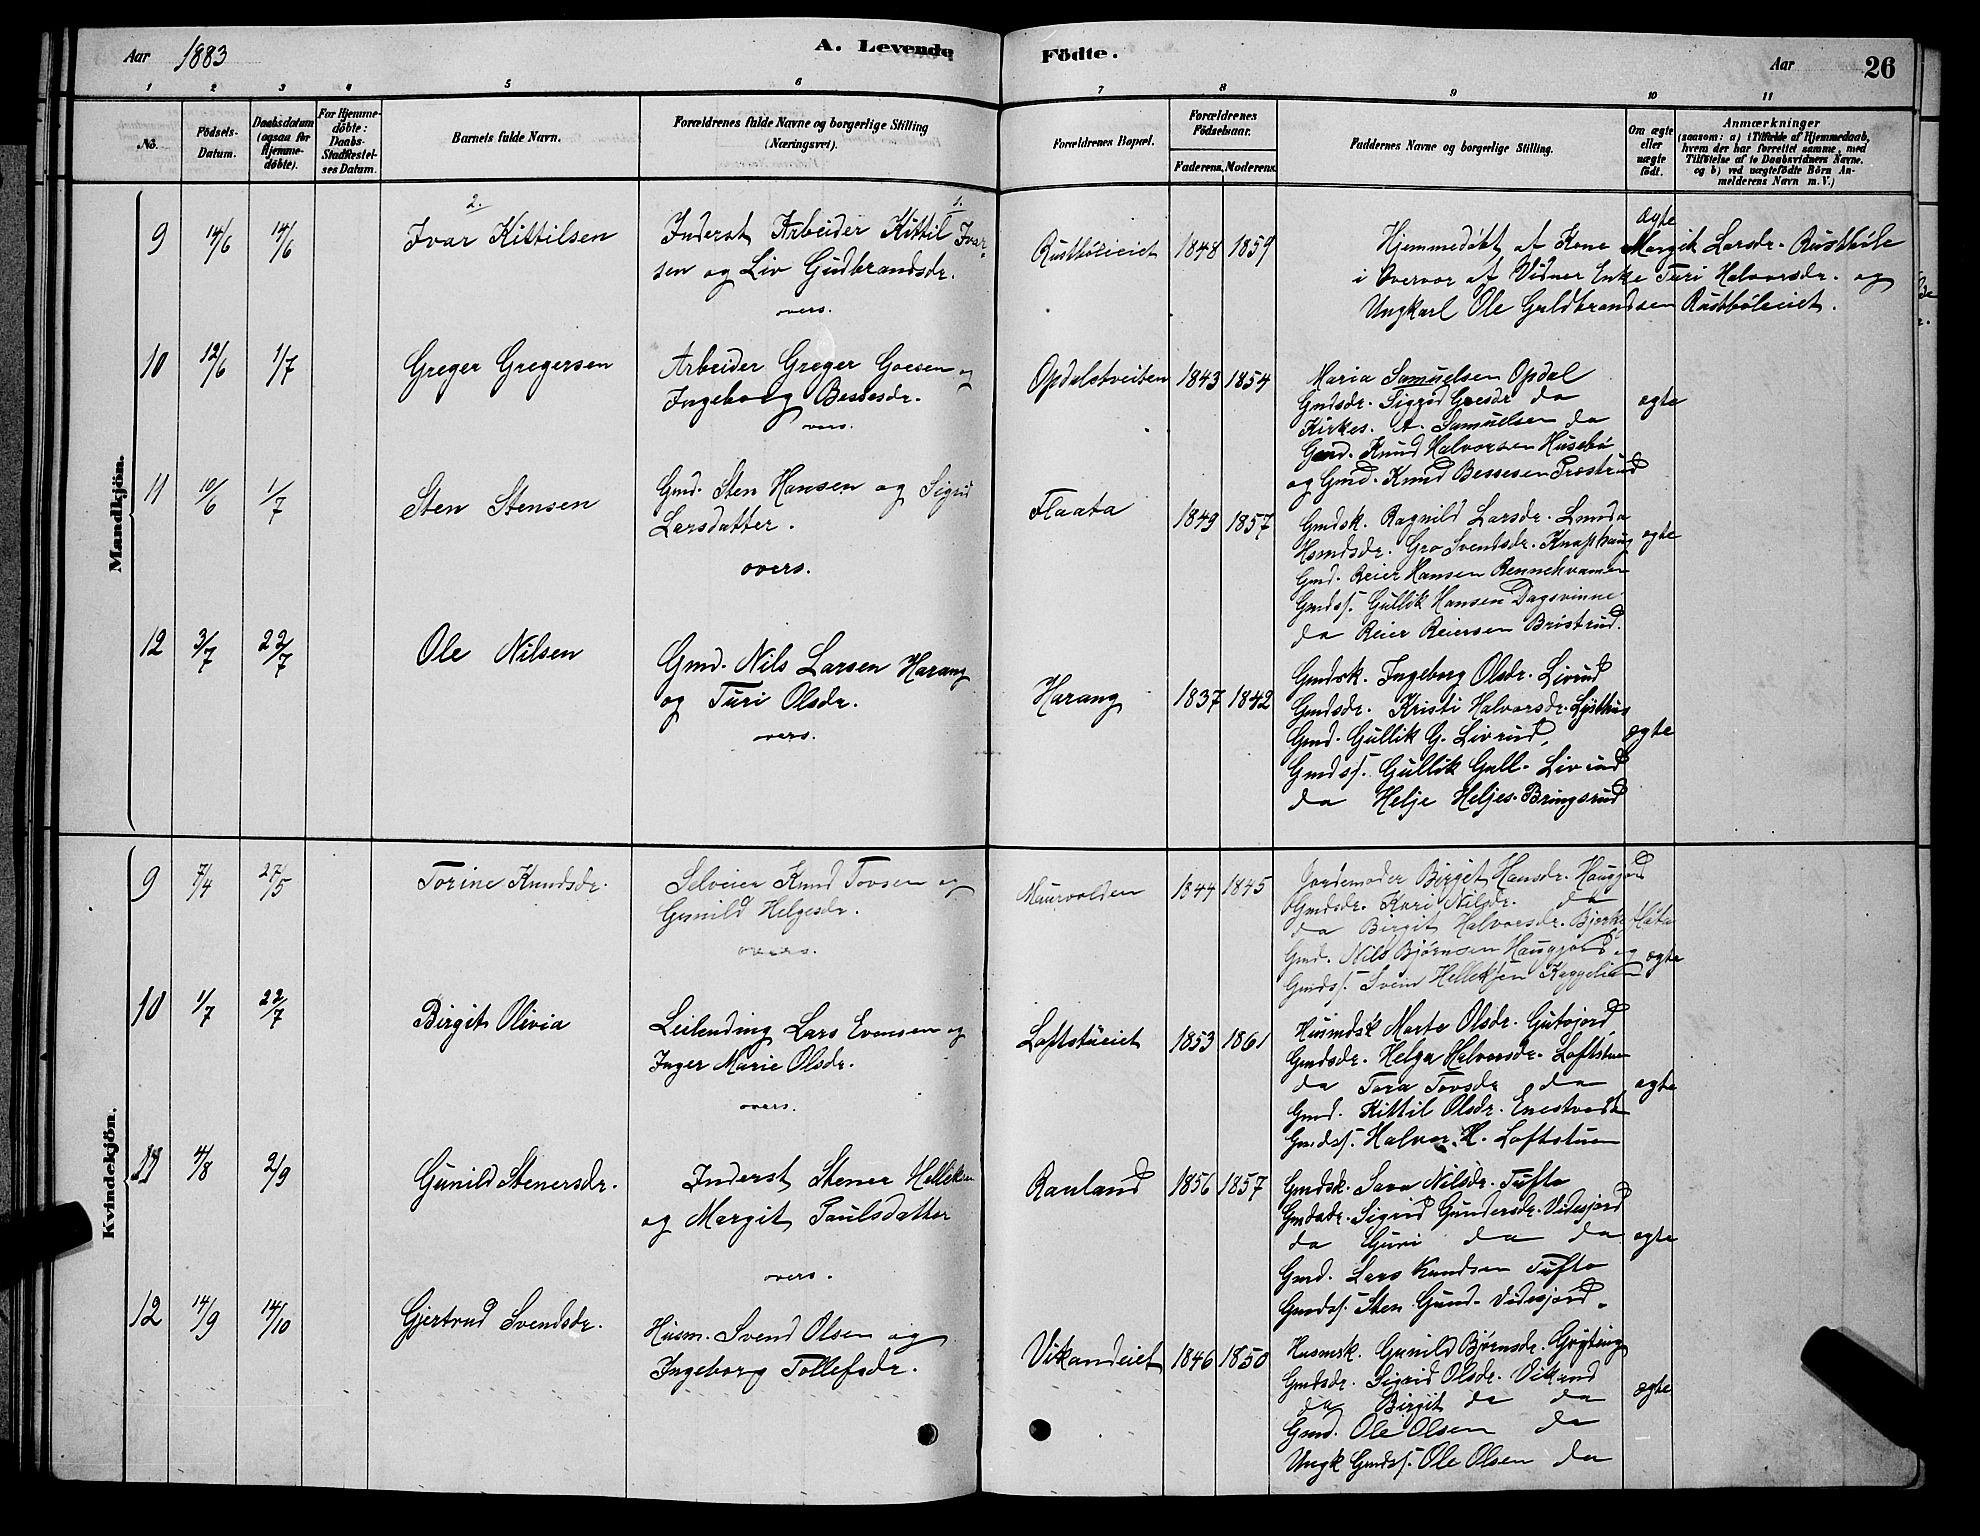 Aar 1883
A. Levende Födte.
Aar 26
1 2 3 4 5 6 7 8 9 10 11
No.
Födsels-Datum.
Daabsdatum (ogsaa for Hjemmedöbte).
For Hjemmedöbte: Daabs-Stadfæstelses Datum.
Barnets fulde Navn.
Forældrenes fulde Navne og borgerlige Stilling (Næringsvei).
Forældrenes Bopæl.
Forældrenes Födselsaar.
Faderens. Moderens.
Faddernes Navne og borgerlige Stilling.
Om ægte eller uægte födt.
Anmærkninger
(saasom: a) i Tilfælde af Hjemmedaab,
hvem der har forrettet samme, med
Tilföielse af to Daabsvidners Navne.
og b) ved uægtefödte Börn An-
melderens Navn m. V.)
Mandkjön.
9 14/6 14/6
2.
Ivar Kittilsen
1.
Inderst Arbeider Kittil Ivar-
sen og Liv Gudbrandsdr.
overs.
Rustböleiet 1848 1859
ægte
Hjemmedöbt af Kone Margit Larsdr. Rustböle
i Overvær af Vidner Enke Turi Halvorsdr. og
Ungkarl Ole Guldbrandsen Rustböleiet.
10 12/6 1/7
Greger Gregersen
Arbeider Greger Goesen og
Ingeborg Bessesdr.
overs.
Opdalstveiten 1843 1854
Maria Samuelsen Opdal
Gmdsdr. Sigrid Goesdr da
Kirkes. A. Samuelsen da
Gmd. Knud Halvorsen Husebö
og Gmd. Knud Bessesen Præstrud
ægte
11 10/6 1/7
Sten Stensen
Gmd. Sten Hansen og Sigrid
Larsdatter.
overs.
Flaata 1849 1857
Gmdsk. Ragnild Larsdr.
Hsmdsdr. Gro Svendsdr. Knapshaug
Gmd. Reier Hansen
Gmdss. Gullik Hansen Dagsvinne
da Reier Reiersen Bristrud.
ægte
12 3/7 22/7
Ole Nilsen
Gmd. Nils Larsen Harang
og Turi Olsdr.
overs.
Harang 1837 1842
Gmdsk. Ingeborg Olsdr. Livrud
Gmdsdr. Kristi Halvorsdr. Lysthus
Gmd. Gullik G. Livrud,
Gmdss. Gullik Gull. Livrud
da Helje Heljes. Bringsrud
ægte
Kvindekjön.
9 7/4 27/5
Torine Knudsdr.
Selveier Knud Tovsen og
Gunild Helgesdr.
overs.
Maurvolden 1844 1845
Jordemoder Birgit Hansdr. Haugjord
Gmdsdr. Kari Nilsdr. da
da Birgit Halvorsdr. Bjerkeflata
Gmd. Nils Bjørnsen Haugjord og
Gmdss. Svein Helleksen Kaggelien
ægte
10 1/7 22/7
Birgit Olivia
Leilending Lars Evensen og
Inger Marie Olsdr.
overs.
Loftstueiet 1853 1861
Husmdsk Marte Olsdr. Gutujord,
Gmdsdr. Helga Halvorsdr. Loftstuen
da Tora Tovsdr da
Gmd. Kittil Olsdr. Enestvedt
Gmdss. Halvor H. Loftstuen
ægte
11 4/8 2/9
Gunild Stenersdr.
Inderst Stener Helliksen
og Margit Paulsdatter
overs.
Rauland 1856 1857
Gmdsk. Sava Nilsdr. Tufto
Gmdsdr. Sigrid Gundersdr. Videsjord
da Guri da da
Gmd. Lars Knudsen Tufto
Gmdss. Sten Gund. Videsjord.
ægte
12 14/9 14/10
Gjertrud Svendsdr.
Husm. Svend Olsen og
Ingeborg Tollefsdr.
Vikandeiet 1846 1850
Husmsk. Gunild Bjørnsdr. Gjøting
Gmdsdr. Sigrid Olsdr. Vikand
da Birgit da da
Gmd. Ole Olsen da
Ungk Gmdss. Ole Olsen da
ægte